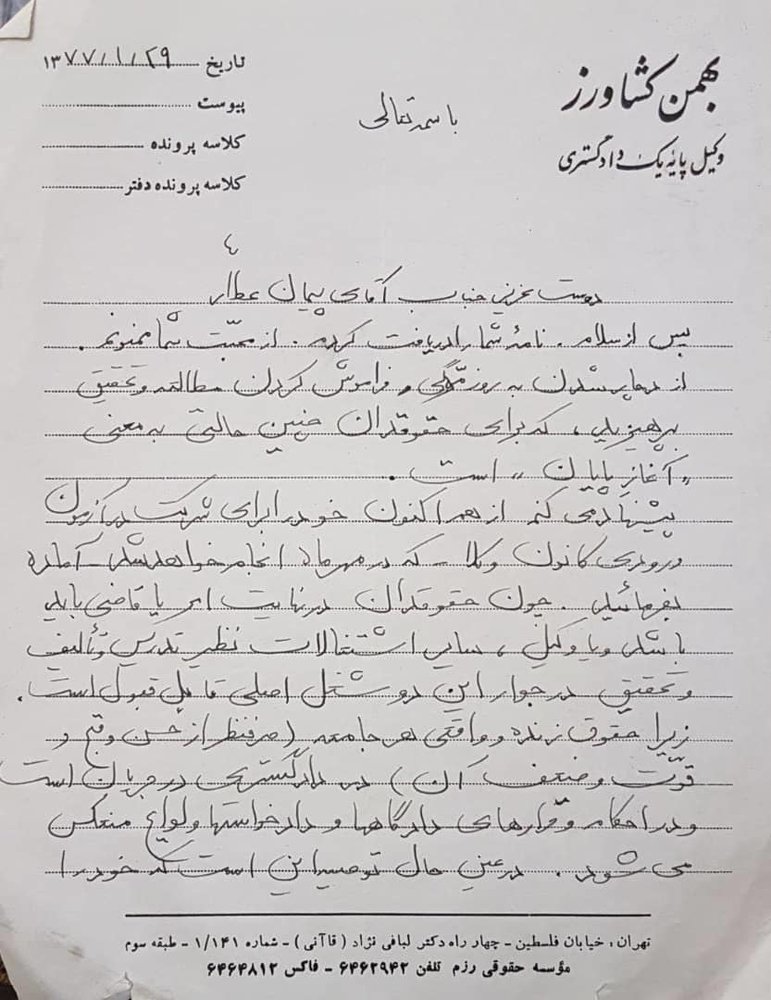 بهمن کشاورز
وکیل پایه یک دادگستری
باسمه تعالی
تاریخ ۱۳۷۷/۱/۲۹
پیوست
کلاسه پرونده
کلاسه پرونده دفتر
دوست عزیز جناب آقای پیمان عطار
پس از سلام. نامهٔ شما را دریافت کردم. از محبّت شما ممنونم.
از دچار شدن به روزمرّگی و فراموش کردن مطالعه و تحقیق
بپرهیزید، که برای حقوقدان چنین حالتی به معنی
«آغاز پایان» است.
پیشنهاد می کنم از هم اکنون خود را برای شرکت در آزمون
ورودی کانون وکلا - که در مهرماه انجام خواهد شد - آماده
بفرمائید. چون حقوقدان در نهایت امر یا قاضی باید
باشد و یا وکیل، سایر اشتغالات نظیر تدریس و تألیف
و تحقیق در جوار این دو شغل اصلی قابل قبول است.
زیرا حقوق زنده و واقعی هر جامعه (صرفنظر از حسن و قبح و
قوّت و ضعف آن) در دادگستری در جریان است
و در احکام و قرارهای دادگاهها و دادخواستها و لوایح منعکس
می شود. در عین حال توصیه این است که خود را
تهران، خیابان فلسطین - چهار راه دکتر لبافی نژاد (قاآنی) - شماره ۱/۱۴۱ - طبقه سوم
مؤسسه حقوقی رزم تلفن ۶۴۶۲۹۴۲ - فاکس ۶۴۶۴۸۱۲